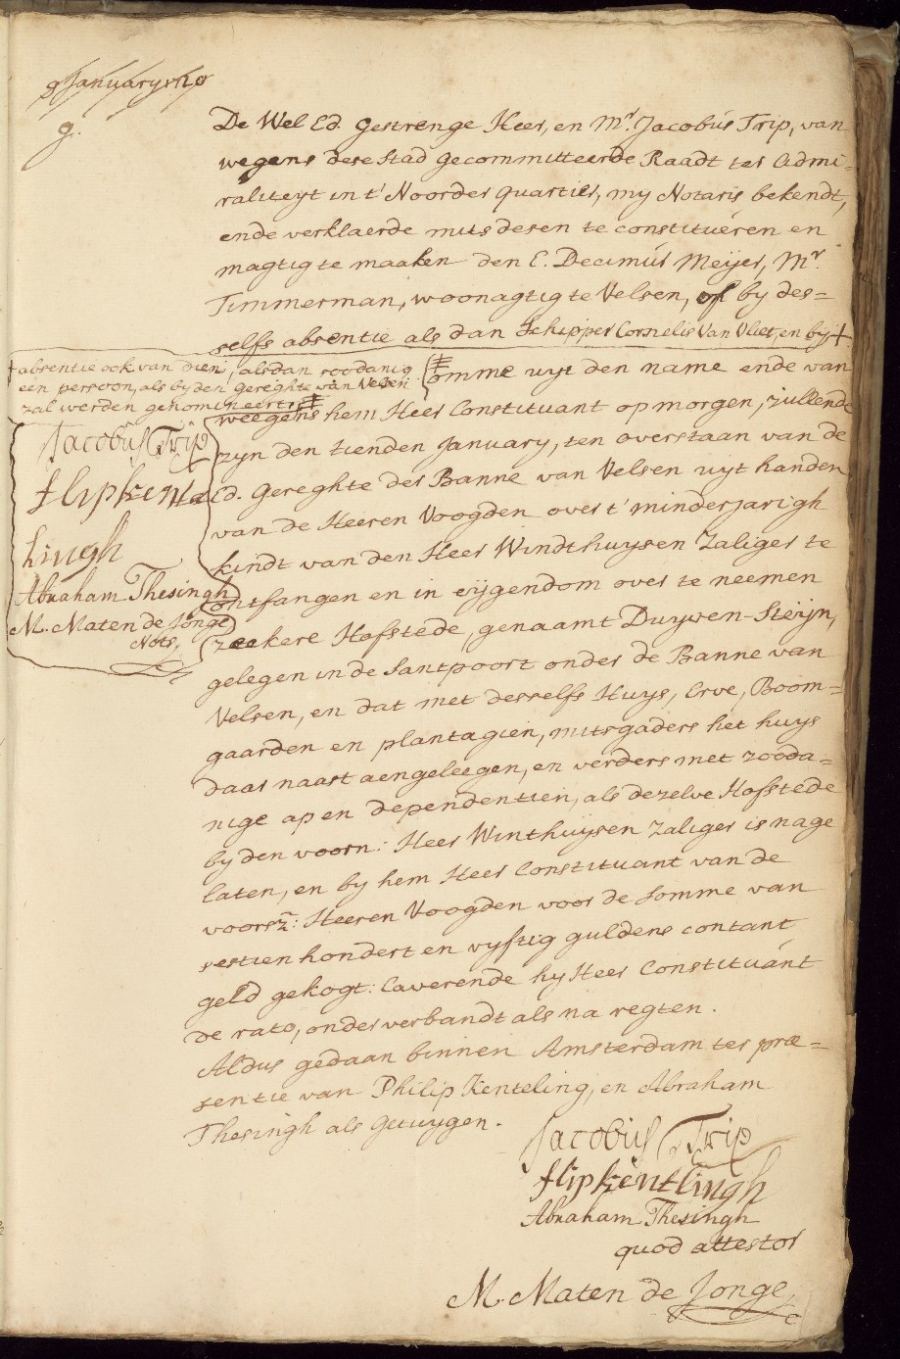 9 January 1710
9.
De Wel Ed. Gestrenge Heer, en Mr. Jacobus Trip, van
wegens dese Stad gecommitteerde Raadt ter Admi-
raliteyt in t' Noorder quartier, my Notaris bekendt,
ende verklaerde mits desen te constitueren en
magtig te maaken den E. Decimus Meijer, Mr.
Timmerman, woonagtig te Velsen, of by des=
selfs absentie als dan Schipper Cornelis van Vliet, en by +
+ absentie ook van dien, alsdan soodanig
een persoon, als by den geregte van Velsen
zal werden genomineert
Jacobus Trip
flipkente
lingh
Abraham Thesingh
M. Maten de Jonge
Nots.
omme uyt den name ende van
weegens hem Heer Constituant op morgen, zullende
zyn den tienden January, ten overstaan van de
Ed. Gereghte der Banne van Velsen uyt handen
van de Heeren Voogden over t' minderjarigh
kindt van den Heer Windthuysen Zaliger te
ontfangen en in eijgendom over te neemen
zeekere Hofstede, genaamt Duywen-Steijn,
gelegen in de Santpoort onder de Banne van
Velsen, en dat met desselfs Huys, Erve, Boom-
gaarden en plantagien, mitsgaders het huys
daar naast aengeleegen, en verders met zooda=
nige ap en dependentien, als dezelve Hofstede
by den voorn: Heer Winthuysen Zaliger is nage
laten, en by hem Heer Constituant van de
voorsz: Heeren Voogden voor de somme van
sestien hondert en vyftig guldens contant
geld gekogt: Caverende hy Heer Constituant
de rato, onder verbandt als na regten.
Aldus gedaan binnen Amsterdam ter præ=
sentie van Philip Kenteling, en Abraham
Thesingh als Getuygen.
Jacobus Trip
flipkentlingh
Abraham Thesingh
quod attestor
M. Maten de Jonge